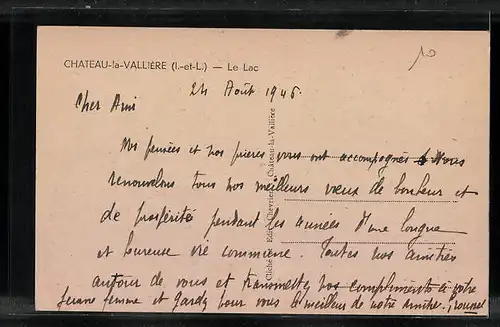 CHATEAU-la-VALLIÈRE (I.-et-L.) — Le Lac
10
24 Août 1946.
Cher Ami
Nos pensées et nos prières vous ont accompagnés Nous
renouvelons tous nos meilleurs vœux de bonheur et
de prospérité pendant les années d'une longue
et heureuse vie commune. Toutes nos amitiés
autour de vous et transmettez nos compliments à votre
jeune femme et gardez pour vous le meilleur de notre
Cliché Edit. Chevrier Château-la-Vallière